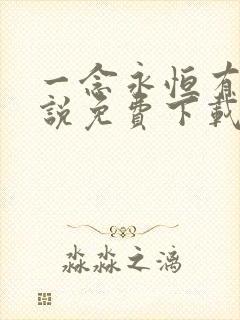 一念永恒有
說免費下載
淼淼之漓